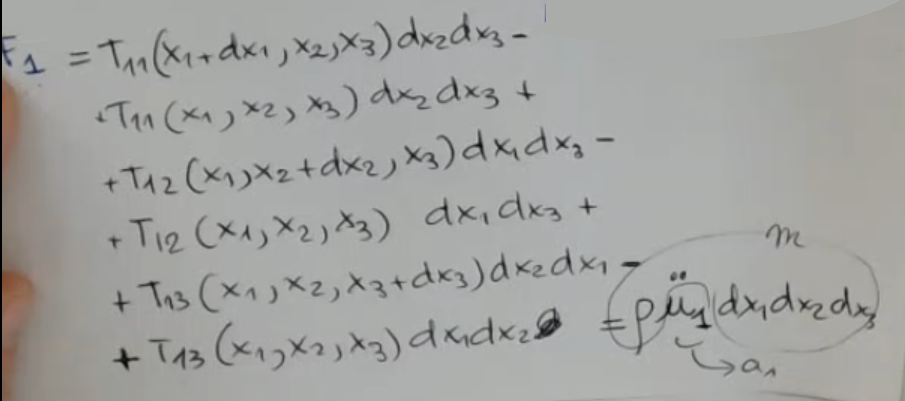 F₁ = T₁₁(x₁+dx₁, x₂, x₃) dx₂dx₃ -
+T₁₁(x₁, x₂, x₃) dx₂dx₃ +
+T₁₂(x₁, x₂+dx₂, x₃) dx₁dx₃ -
+T₁₂(x₁, x₂, x₃) dx₁dx₃ +
m
+T₁₃(x₁, x₂, x₃+dx₃) dx₂dx₁ -
+T₁₃(x₁, x₂, x₃) dx₁dx₂ = ρü₁ dx₁dx₂dx₃
↳ a₁